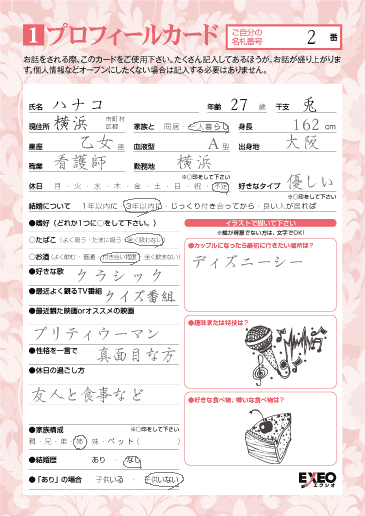 1 プロフィールカード
ご自分の名札番号 2 番
お話をされる際、このカードをご使用下さい。たくさん記入してあるほうが、お話が盛り上がります。個人情報などオープンにしたくない場合は記入する必要はありません。
氏名 ハナコ 年齢 27 歳 干支 兎
現住所 横浜 市町村区郡 家族と 同居・一人暮らし 身長 162 cm
星座 乙女 座 血液型 A 型 出身地 大阪
職業 看護師 勤務地 横浜
※○印をして下さい
休日 月・火・水・木・金・土・日・祝・不定 好きなタイプ 優しい
※○印をして下さい
結婚について 1年以内に・3年以内に・じっくり付き合ってから・良い人が居れば
●嗜好(どれか1つに○をして下さい。)
○たばこ(よく吸う・たまに吸う・全く吸わない)
○お酒(よく飲む・普通・付き合い程度・全く飲まない)
●好きな歌 クラシック
●最近よく観るTV番組 クイズ番組
●最近観た映画orオススメの映画
プリティウーマン
●性格を一言で 真面目な方
●休日の過ごし方
友人と食事など
●家族構成 ※○印をして下さい
親・兄・弟・姉・妹・ペット( )
●結婚歴 あり・なし
●「あり」の場合 子供いる・子供いない
イラストで描いて下さい
※絵が得意でない方は、文字でOK!
●カップルになったら最初に行きたい場所は?
ディズニーシー
●趣味または特技は?
●好きな食べ物、嫌いな食べ物は?
EXEO
エクシオ